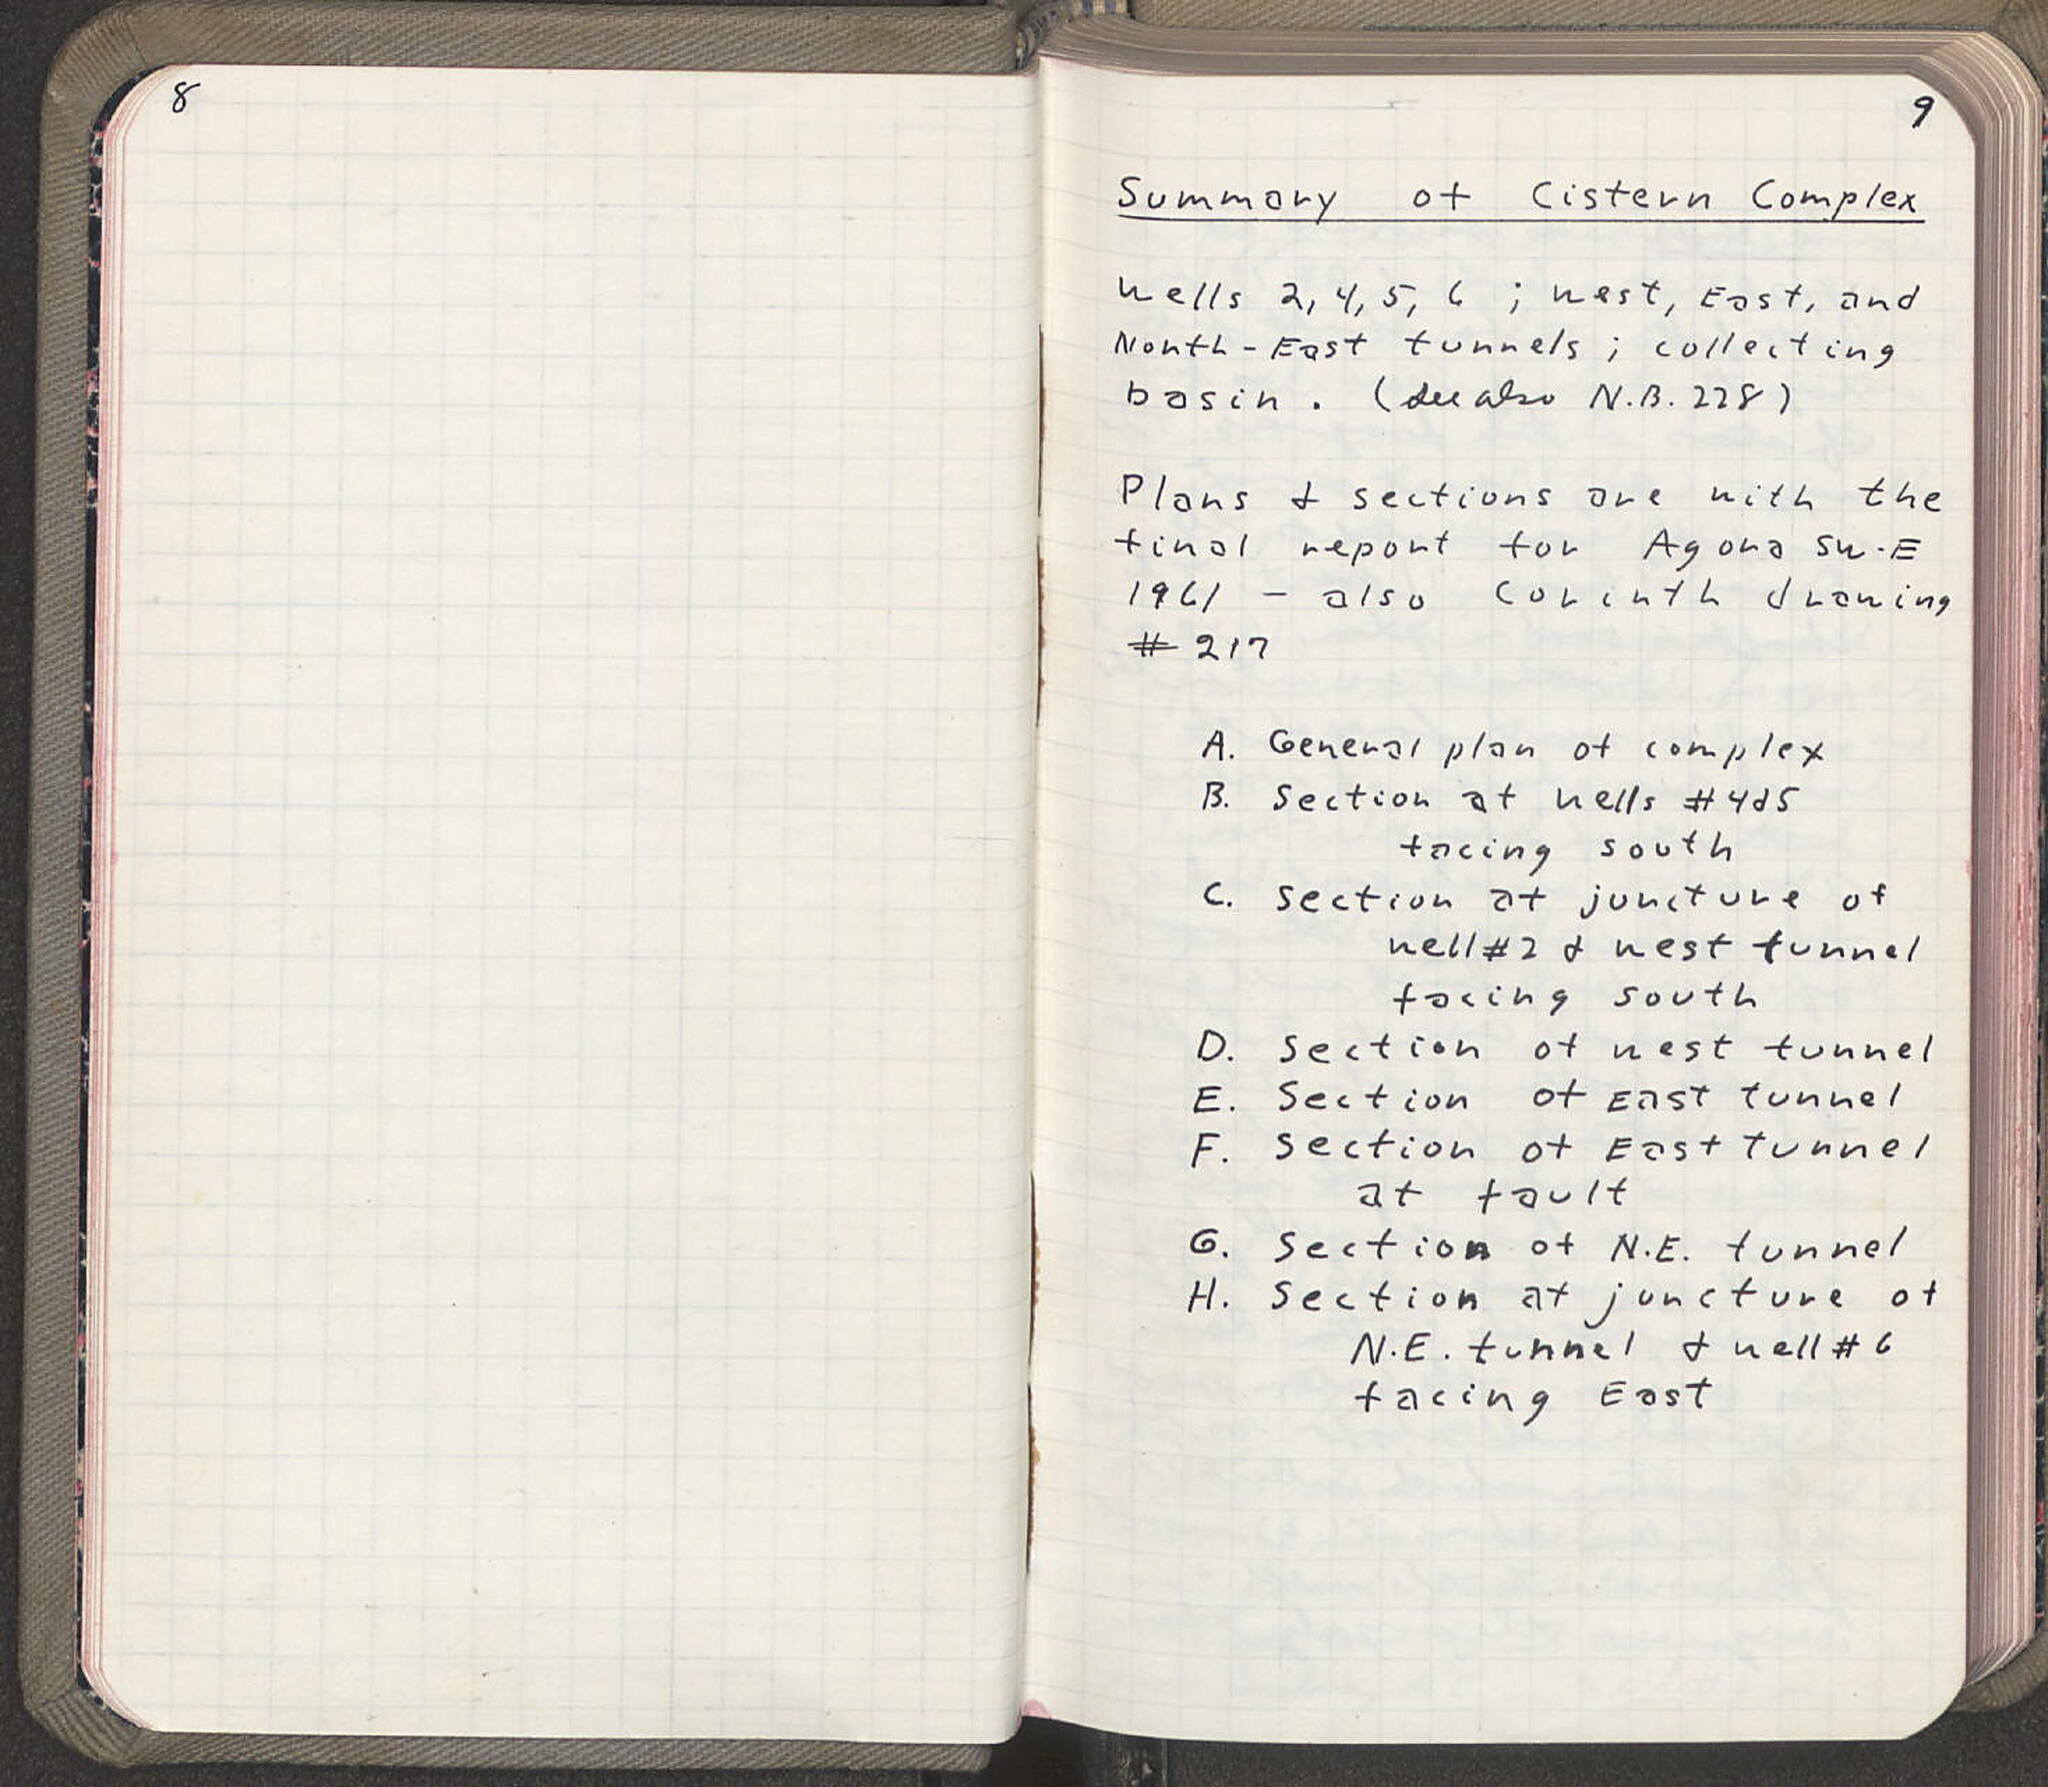 8
9
Summary of Cistern Complex
Wells 2, 4, 5, 6 ; West, East, and
North-East tunnels ; collecting
basin. (See also N.B. 228)
Plans & sections are with the
final report for Agora SW-E
1961 - also Corinth drawing
# 217
A. General plan of complex
B. Section at Wells #4&5
facing south
C. Section at juncture of
well #2 & West tunnel
facing south
D. Section of West tunnel
E. Section of East tunnel
F. Section of East tunnel
at fault
G. Section of N.E. tunnel
H. Section at juncture of
N.E. tunnel & well #6
facing East